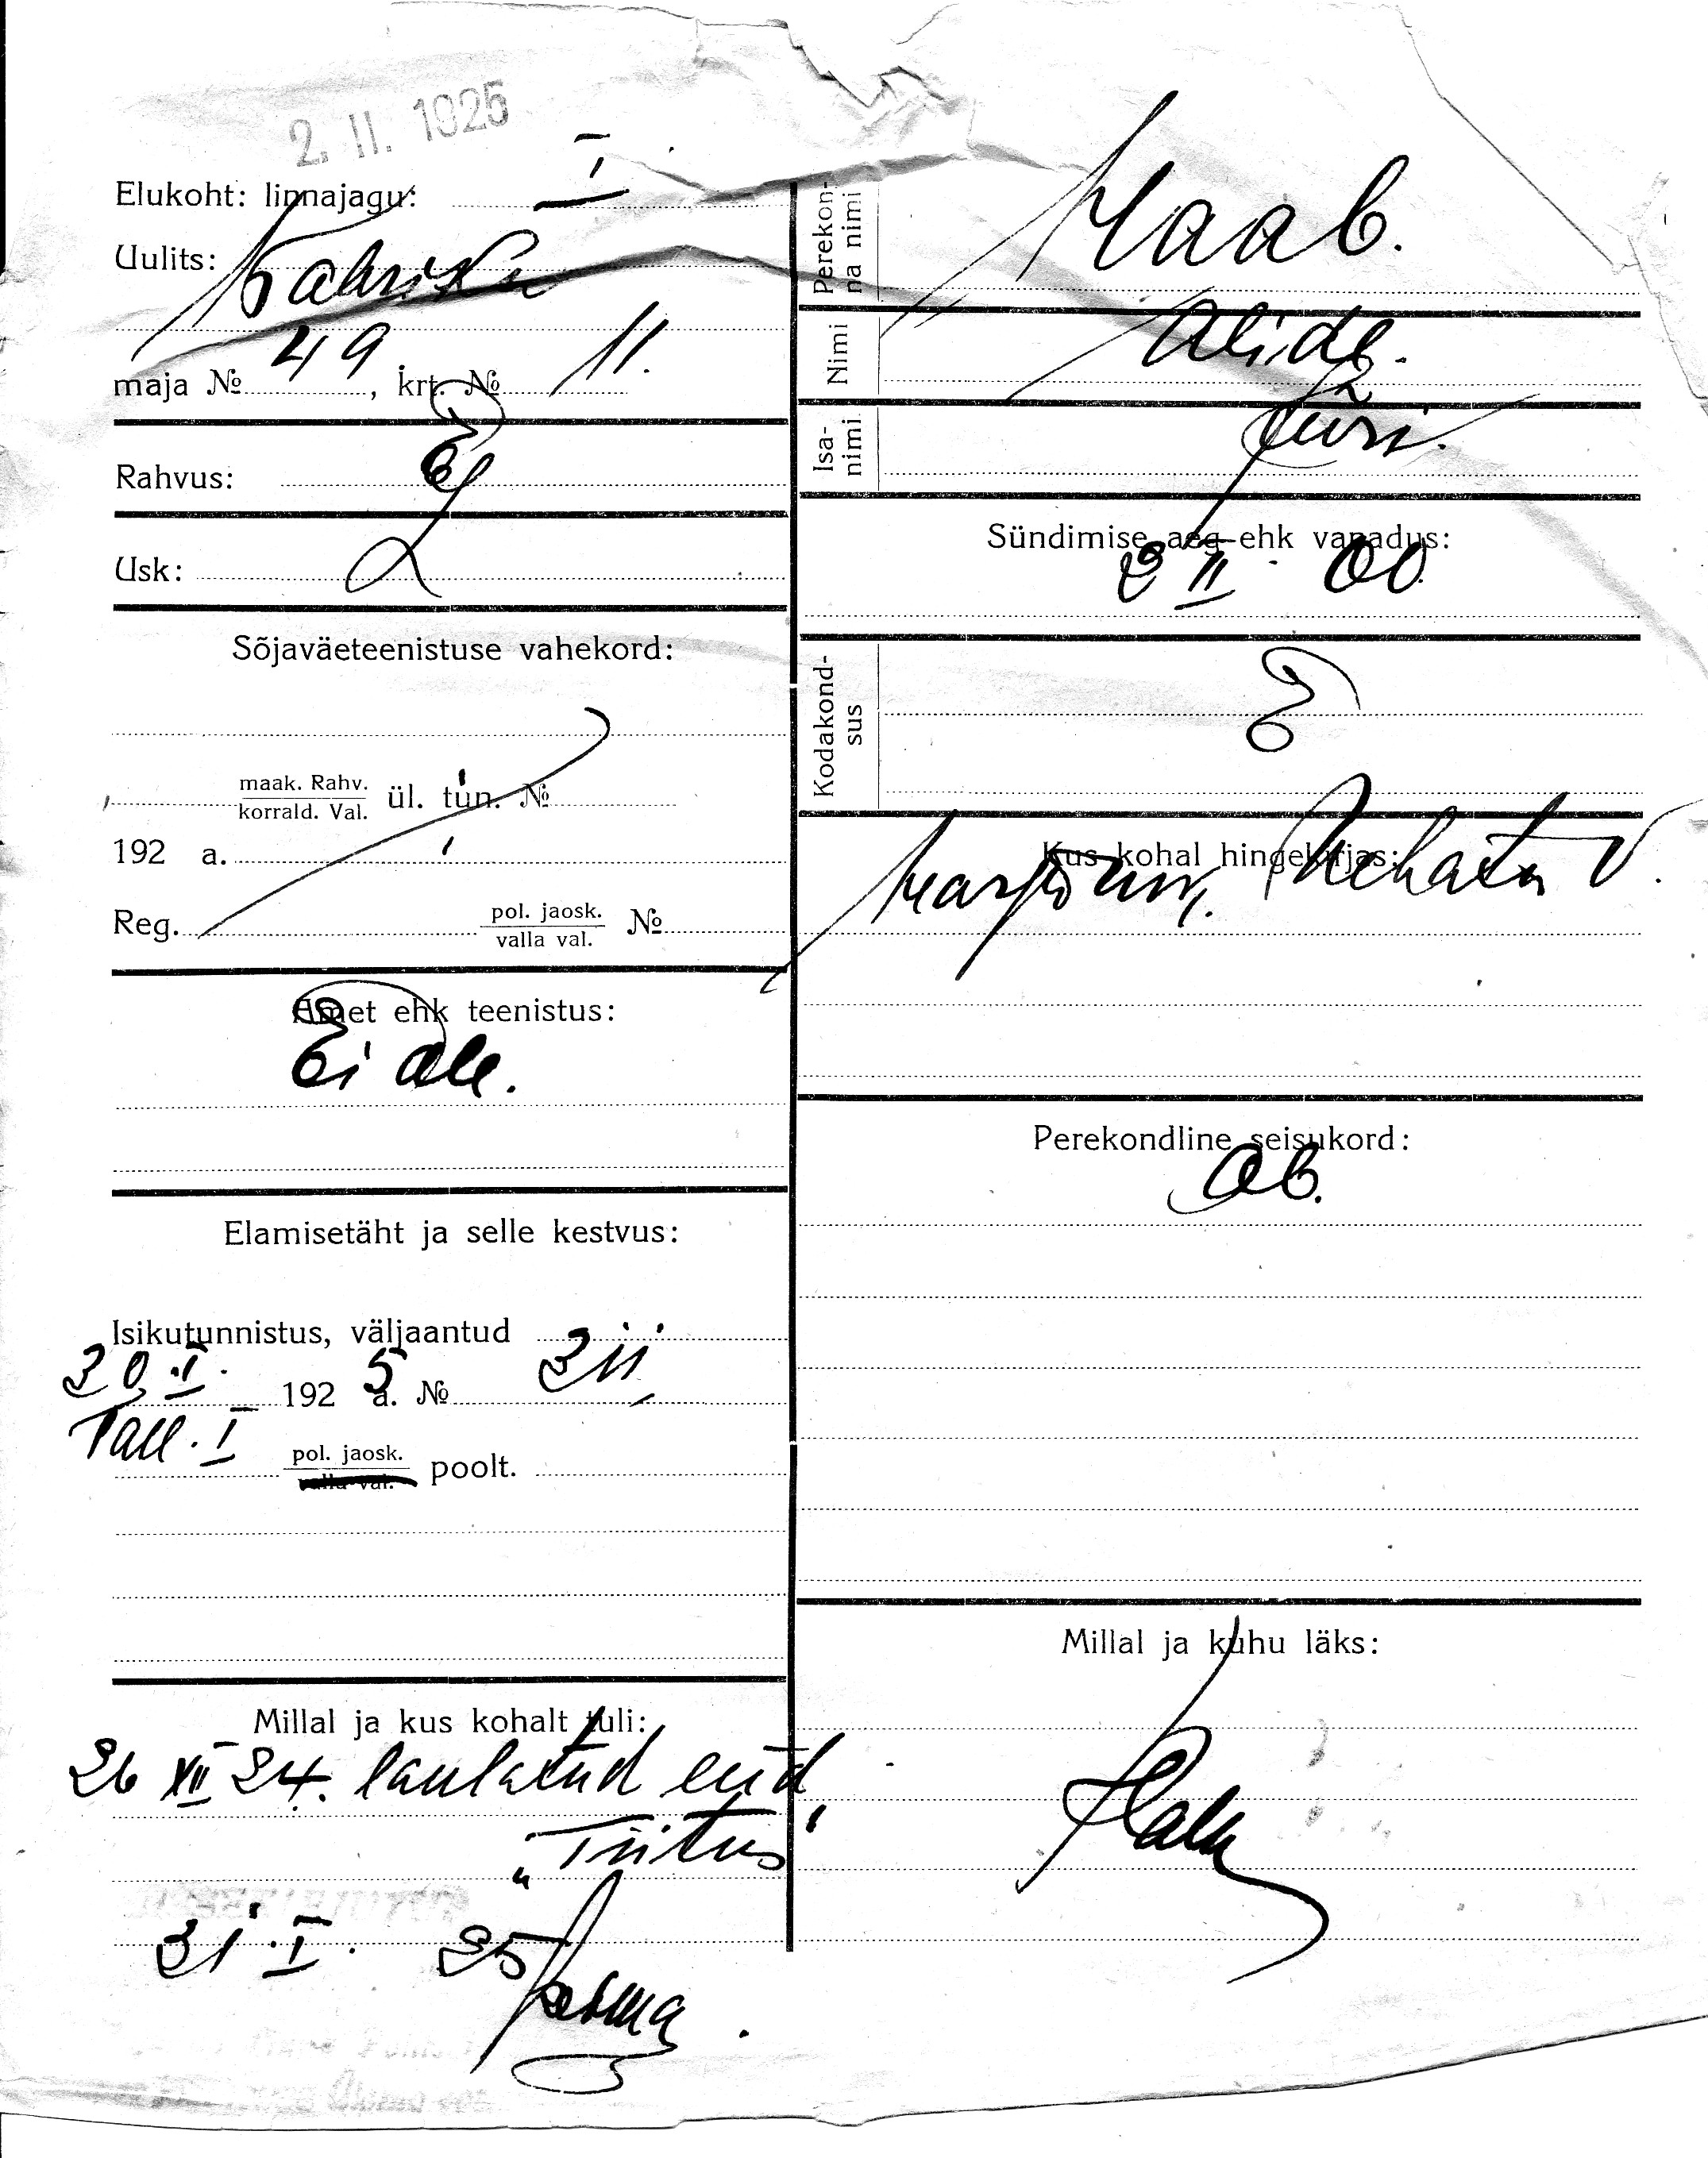 2. II. 1925
Elukoht: linnajagu: I
Uulits: Wabriku
maja № 49, krt. № 11.
Rahvus: E
Usk: L
Sõjaväeteenistuse vahekord:
maak. Rahv.
korrald. Val. ül. tun. №
192 a.
Reg. pol. jaosk.
valla val. №
Amet ehk teenistus:
Ei ole.
Elamisetäht ja selle kestvus:
Isikutunnistus, väljaantud
30. I. 1925 a. № 311
Tall. I pol. jaosk.
valla val. poolt.
Millal ja kus kohalt tuli:
26 XII 24. laulatud end.
„Tiitus"
31. I. 25
Perekonna nimi Haab.
Nimi Alide.
Isanimi Jüri.
Sündimise aeg ehk vanadus:
2 II 00.
Kodakondsus E
Kus kohal hingekirjas:
Harjum. Nehatu v.
Perekondline seisukord:
Ab.
Millal ja kuhu läks: